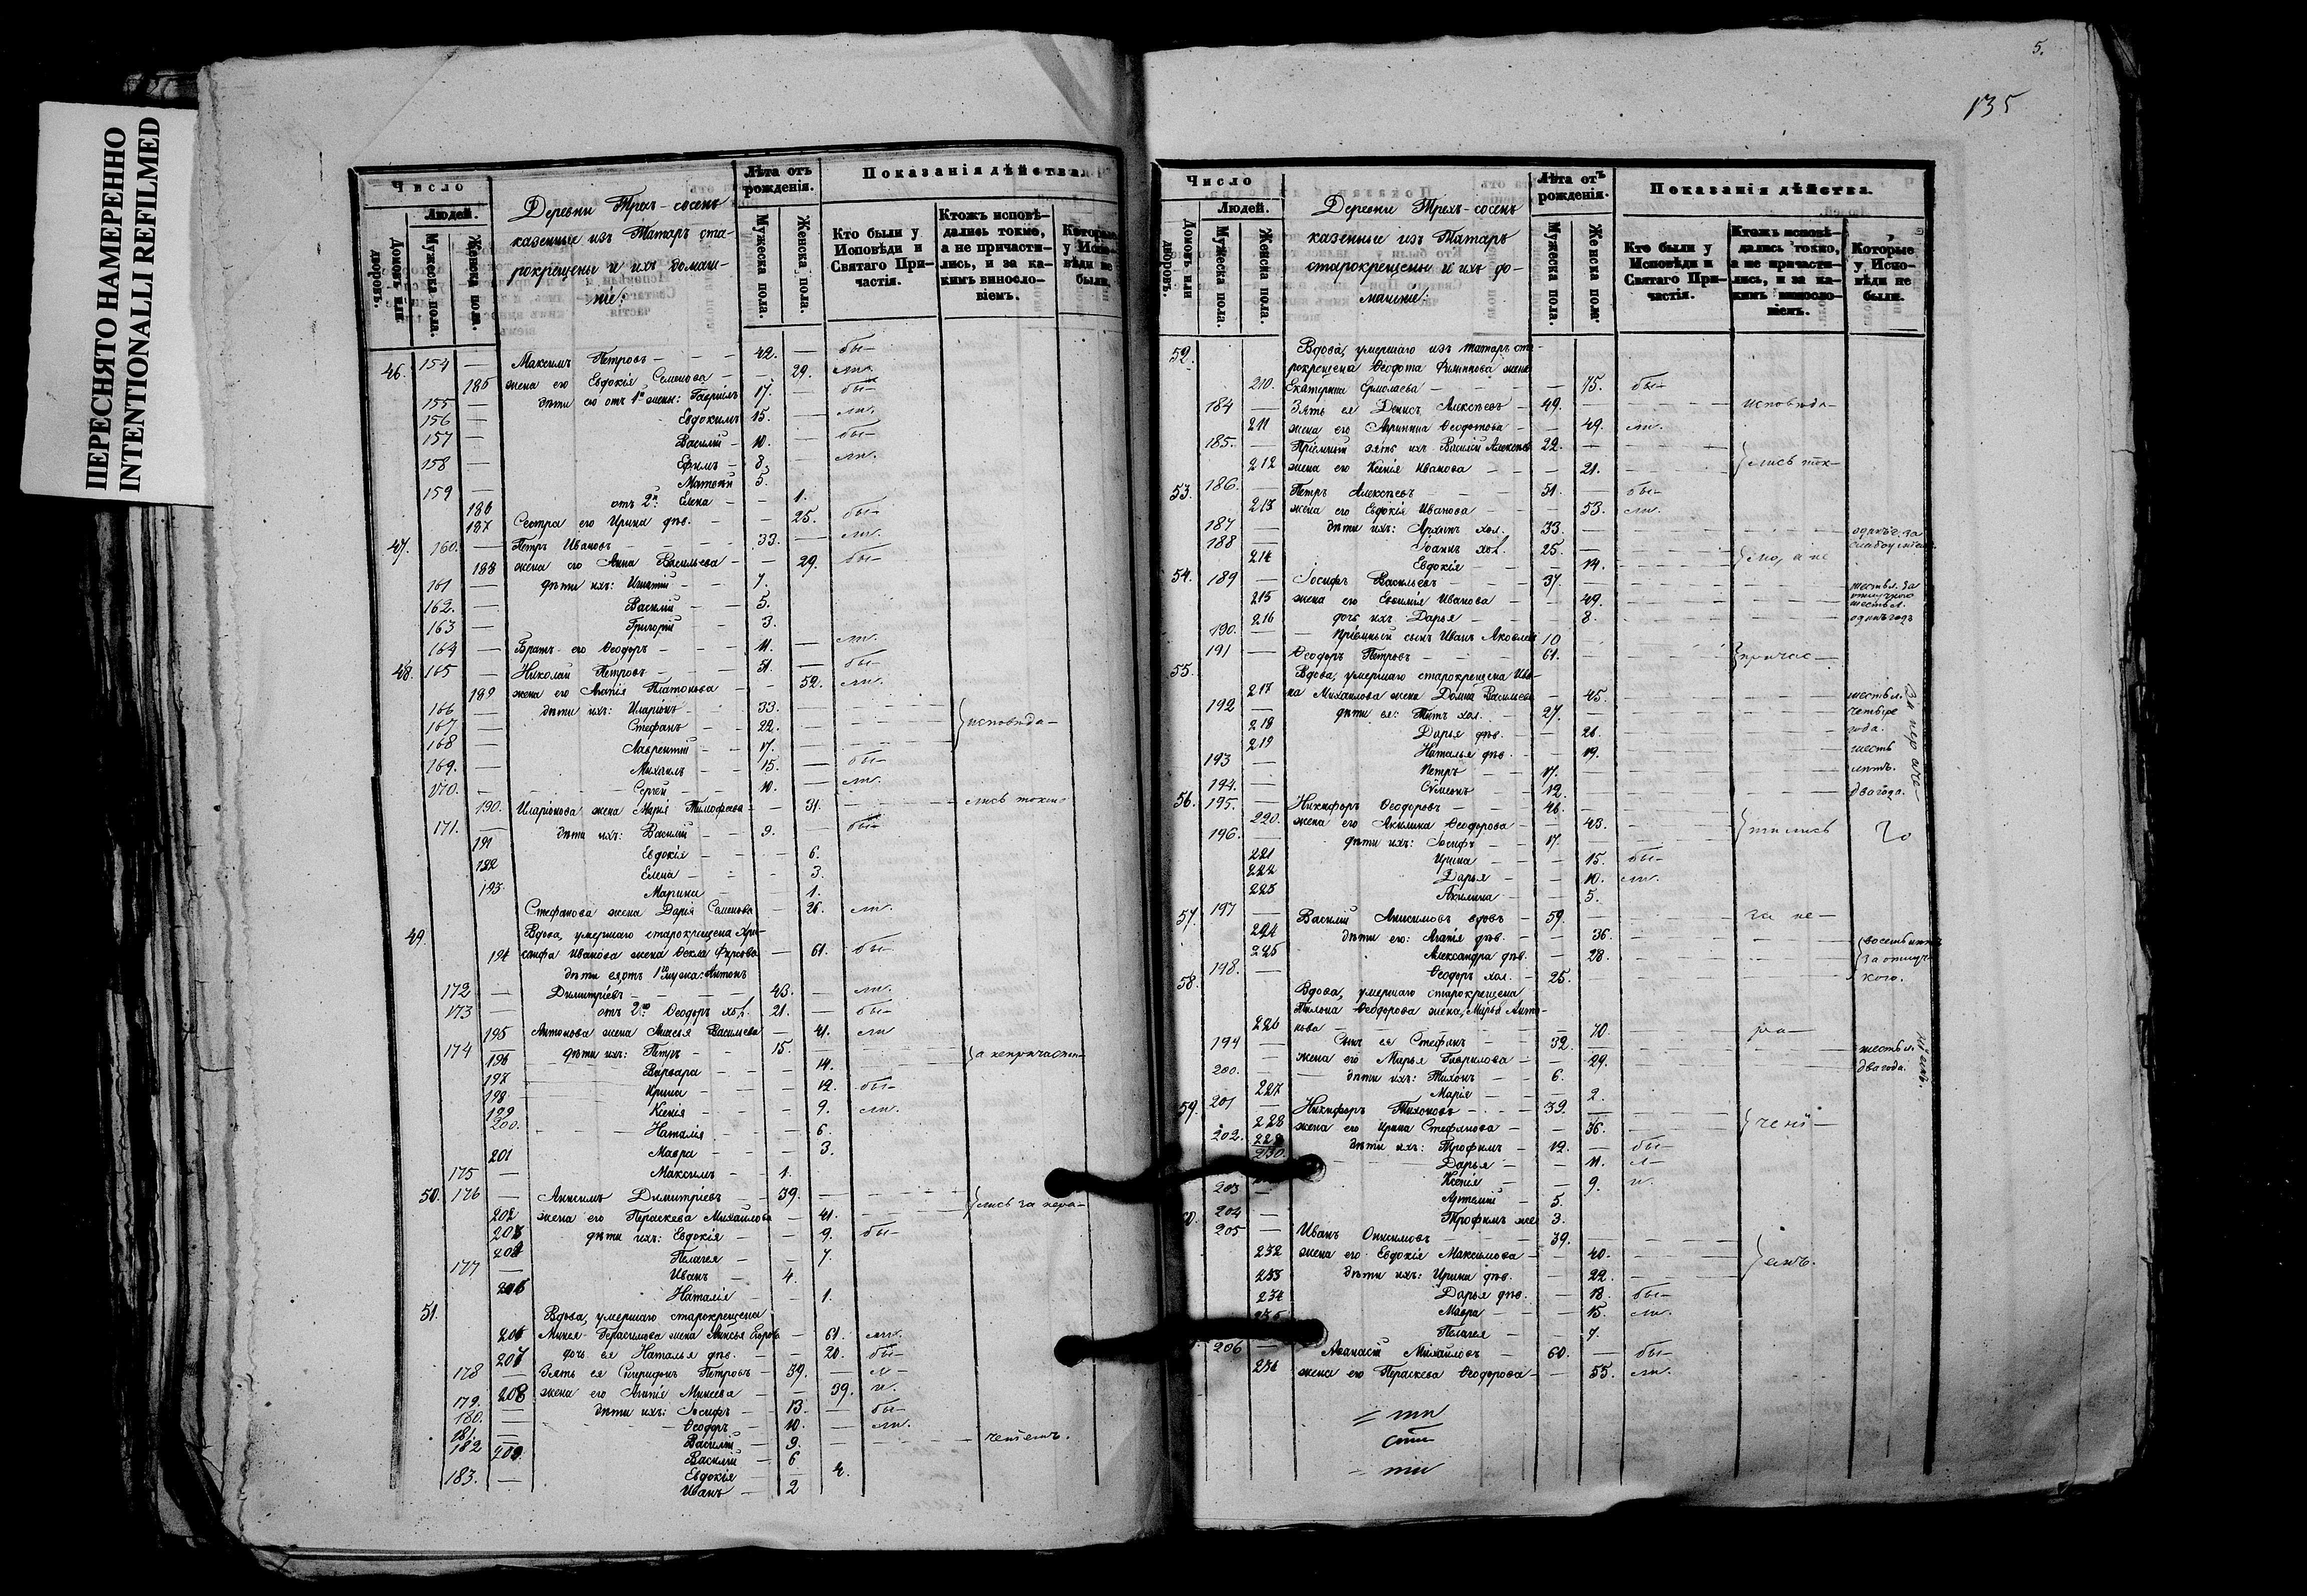 ПЕРЕСНЯТО НАМЕРЕННО
INTENTIONALLI REFILMED
Число
Людей.
Домовъ или дворовъ.
Мужеска пола.
Женска пола.
Деревни Трехъ-сосенъ
казенные изъ Татаръ ста-
рокрещены и ихъ домаш-
ніе:
Лѣта отъ рожденія.
Мужеска пола.
Женска пола.
Показанія дѣйства
Кто были у Исповѣди и Святаго При-частія.
Ктожъ исповѣ-дались токмо, а не причасти-лись, и за ка-кимъ винослo-віемъ.
Которые у Испо-вѣди не были.
46. 154 — Максимъ Петровъ — 42. — бы-
186 жена его Евдокія Семенова — 29. ли.
155 — дѣти его отъ 1й жены: Гавріилъ 17. — бы-
156 — Евдокимъ 15. — ли.
157 — Василій — 10. — бы-
158 — Ефимъ — 8. — ли.
159 — Матвѣй 5.
186 отъ 2й: Елена — 1.
187 Сестра его Ирина дѣв. — 25. бы-
47. 160. — Петръ Ивановъ — 33. — ли.
188 жена его Анна Васильева — 29. бы-
161 — дѣти ихъ: Игнатій — 7.
162. — Василій — 5.
163 — Григорій — 3.
164 — Братъ его Ѳеодоръ — 11. — ли.
48. 165 — Николай Петровъ — 51. — бы-
189 жена его Агапія Платонова — 52. ли.
166 — дѣти ихъ: Иларіонъ — 33.
167 — Стефанъ — 22. — исповѣда-
168 — Лаврентій — 17.
169. — Михаилъ — 15. — бы-
170. — Сергѣй — 10. — ли.
190. Иларіонова жена Марія Тимофеева — 31. — лись токмо
171. — дѣти ихъ: Василій — 9. — бы-
191 Евдокія — 6.
192 Елена — 3.
193. Марина — 1.
Стефанова жена Дарія Семенова — 26. ли.
49. Вдова, умершаго старокрещена Хри-
194 санфа Иванова жена Ѳекла Фирсова — 61. бы-
дѣти ея, отъ 1го мужа: Антонъ
172 — Димитріевъ — 43. — ли.
173 — отъ 2го Ѳеодоръ хол. 21. — бы-
195 Антонова жена Анисія Васильева — 41. ли
174 — дѣти ихъ: Петръ — 15. — а непричасти-
196 Варвара — 14.
197 Ирина — 12. бы-
198 Ксенія — 9. ли.
199
200. Наталія — 6.
201 Мавра — 3.
175 — Максимъ — 1.
50. 176 — Анисимъ Димитріевъ — 39. — лись за нера-
202 жена его Параскева Михайлова — 41.
203 дѣти ихъ: Евдокія — 9. бы-
204 Пелагея — 7.
177 — Иванъ — 4.
205 Наталія — 1.
51. Вдова, умершаго старокрещена
206 Минея Герасимова жена Анисья Егорова — 61. ли.
207 дочь ея Наталья дѣв. — 20. бы-
178 — Зять ея Спиридонъ Петровъ — 39. — л-
208 жена его Агапія Минеева — 39. и.
179. — дѣти ихъ: Іосифъ — 13. — бы-
180. — Ѳеодоръ — 10. — ли.
181. — Василій — 9. — ченіемъ.
182 — Василій — 6
209. Евдокія — 4.
183. — Иванъ — 2
5.
135
Число
Людей.
Домовъ или дворовъ.
Мужеска пола.
Женска пола.
Деревни Трехъ-сосенъ
казенные изъ Татаръ
старокрещены и ихъ до-
машніе:
Лѣта отъ рожденія.
Мужеска пола.
Женска пола.
Показанія дѣйства.
Кто были у Исповѣди и Святаго При-частія.
Ктожъ исповѣ-дались токмо, а не причасти-лись, и за ка-кимъ винослo-віемъ.
Которые у Испо-вѣди не были.
52. Вдова, умершаго изъ татаръ ста-
рокрещена Ѳеодота Филиппова жена
210. Екатерина Ермолаева — 75. бы-
184 — Зять ея Денисъ Алексѣевъ — 49. — исповѣда-
211 жена его Агрипина Ѳеодотова — 49. ли.
185. — Пріемный зять ихъ Василій Алексѣевъ 22.
212 жена его Ксенія Иванова — 21. — лись ток-
53. 186. — Петръ Алексѣевъ — 51. — бы-
213 жена его Евдокія Иванова — 53. ли.
187 — дѣти ихъ: Архипъ хол. 33.
188 — Іоаннъ хол. 25. — мо, а не
214 Евдокія — 14.
54. 189 — Іосифъ Васильевъ — 37. — шесть л. за
215 жена его Евѳимія Иванова — 49.
216 дочь ихъ Дарья — 8.
190. — пріемный сынъ Иванъ Яковлевъ 10
191 — Ѳеодоръ Петровъ — 61. — причас-
55. Вдова, умершаго старокрещена Ива-
217 на Михаилова жена Домна Васильева — 45. — шесть л.
192 — дѣти ея: Титъ хол. — 27. — четыре
218 Дарья дѣв. — 26. — года.
219 Наталья дѣв. — 19. — шесть
193 — Петръ — 17. — лѣтъ.
194. — Сѵмеонъ — 12. — два года.
56. 195. — Никифоръ Ѳеодоровъ — 46.
220. жена его Акилина Ѳеодорова — 43. — тились
196. — дѣти ихъ: Іосифъ — 17.
221 Ирина — 15. бы-
222 Дарья — 10. ли.
223 Акилина — 5.
57. 197 — Василій Анисимовъ вдовъ — 59. — за не-
224 дѣти его: Агапія дѣв. — 36.
225 Александра дѣв. — 28. — за отлуч-
198. — Ѳеодоръ хол. — 25. — кою.
58. Вдова, умершаго старокрещена
Тихона Ѳеодорова жена, Марья Анто-
226 нова — 70. — ра-
199 — Сынъ ея Стефанъ — 32. — шесть л.
жена его Марья Гаврилова — 29. — два года.
200. — дѣти ихъ: Тихонъ — 6.
227 Марія — 2.
59. 201 — Никифоръ Тихоновъ — 39. — чені-
228 жена его Ирина Стефанова — 36.
202. 229 дѣти ихъ: Трофимъ — 12. — бы-
230. Дарья — 11. л-
Ксенія — 9. и.
203 — Артемій — 5.
204 — Трофимъ же 3.
205 — Иванъ Онисимовъ — 39.
232 жена его Евдокія Максимова — 40. — емъ.
233 дѣти ихъ: Ирина дѣв. — 22.
234 Дарья дѣв. — 18. бы-
235 Мавра — 15. ли.
Пелагея — 7.
206 — Аѳанасій Михайловъ — 60. — бы-
236 жена его Параскева Ѳеодорова — 55. ли.